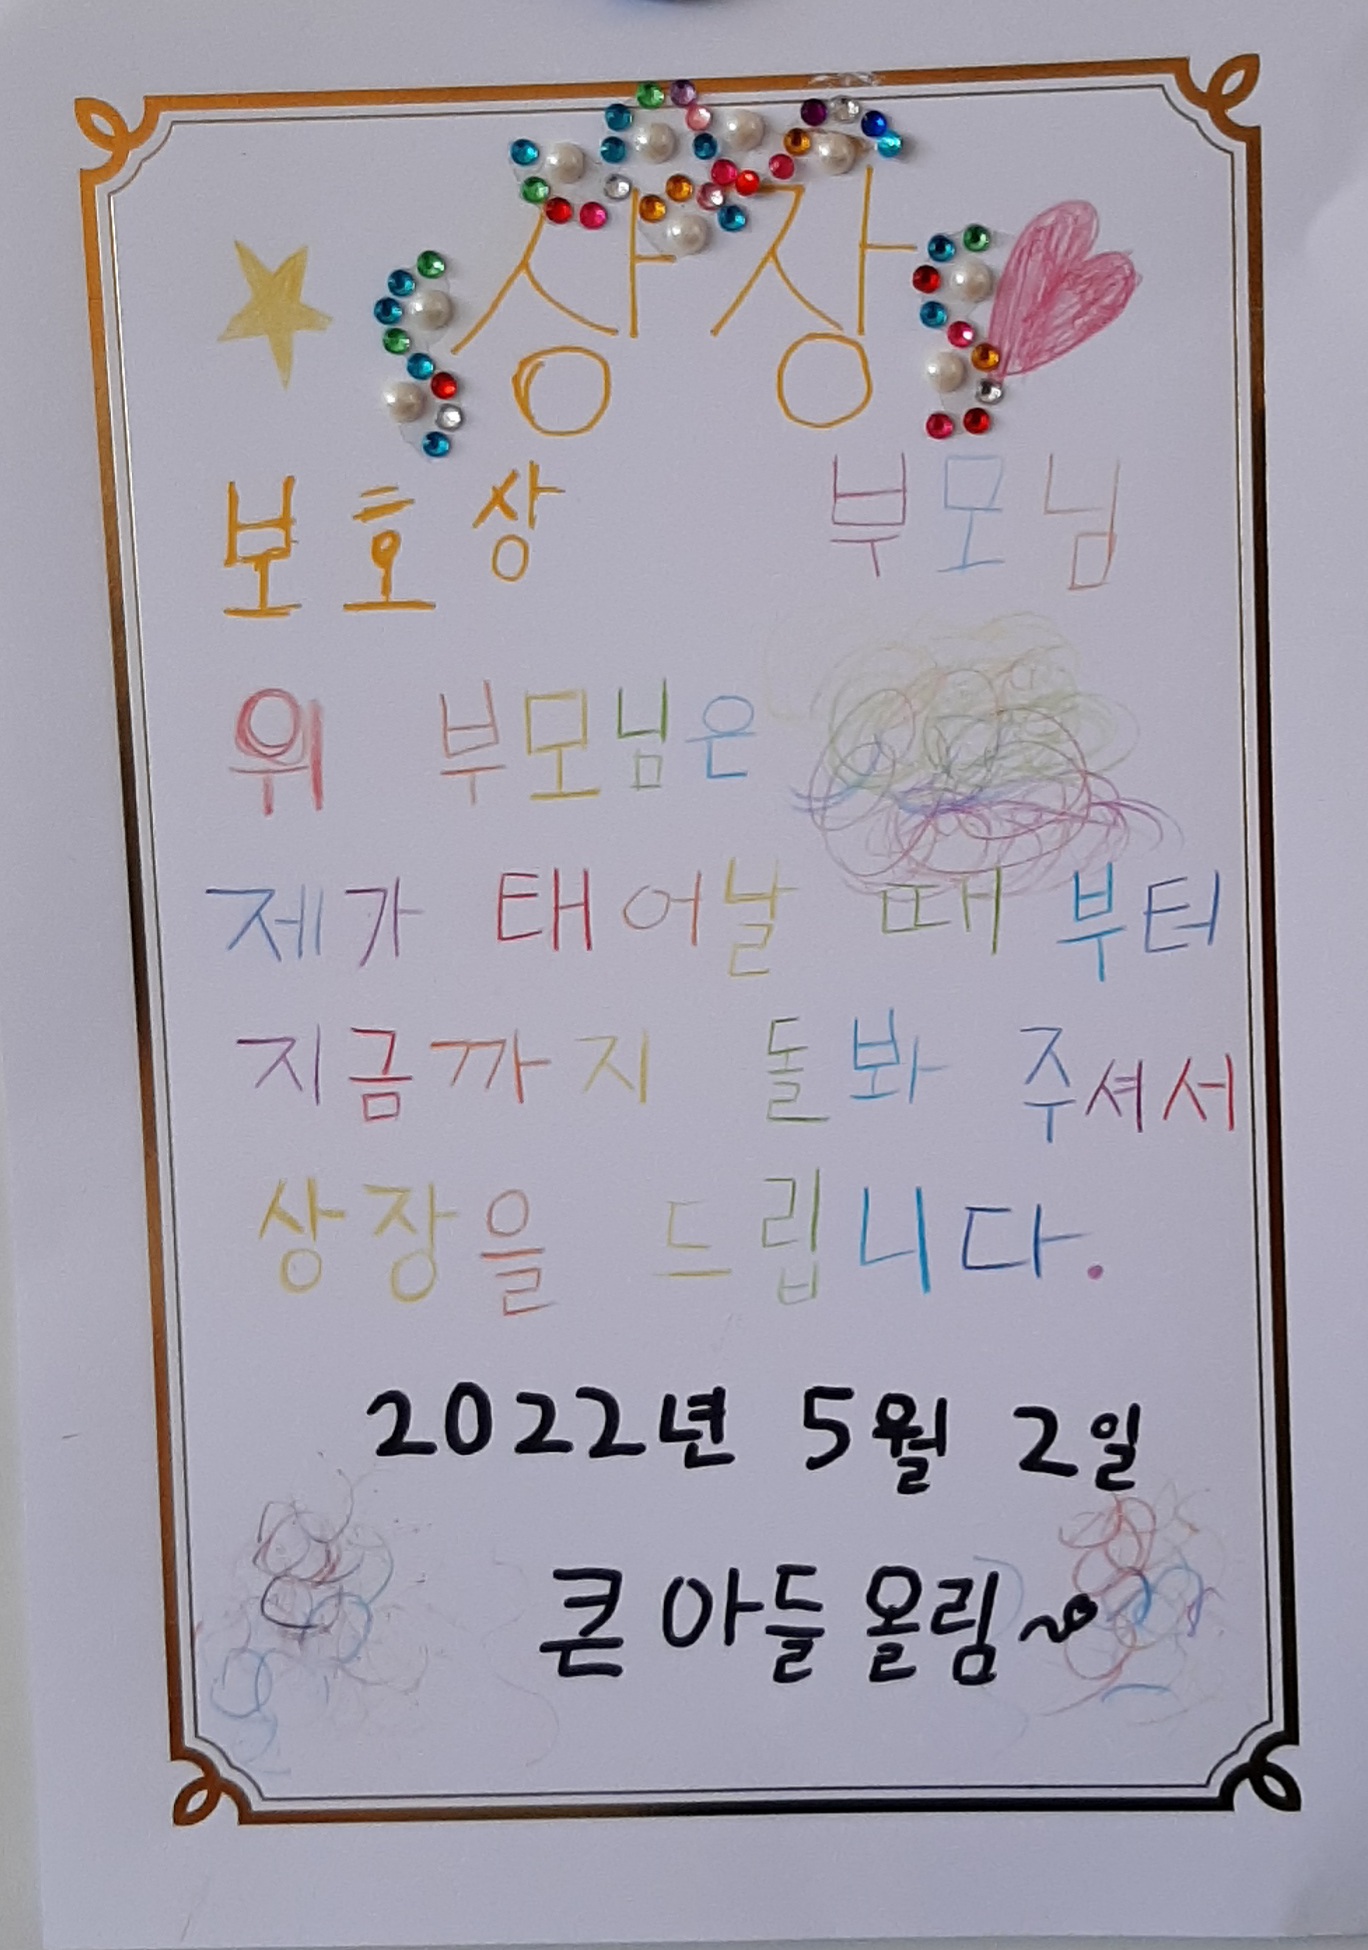 상장
보호상 부모님
위 부모님은
제가 태어날 때부터
지금까지 돌봐 주셔서
상장을 드립니다.
2022년 5월 2일
큰아들 올림~